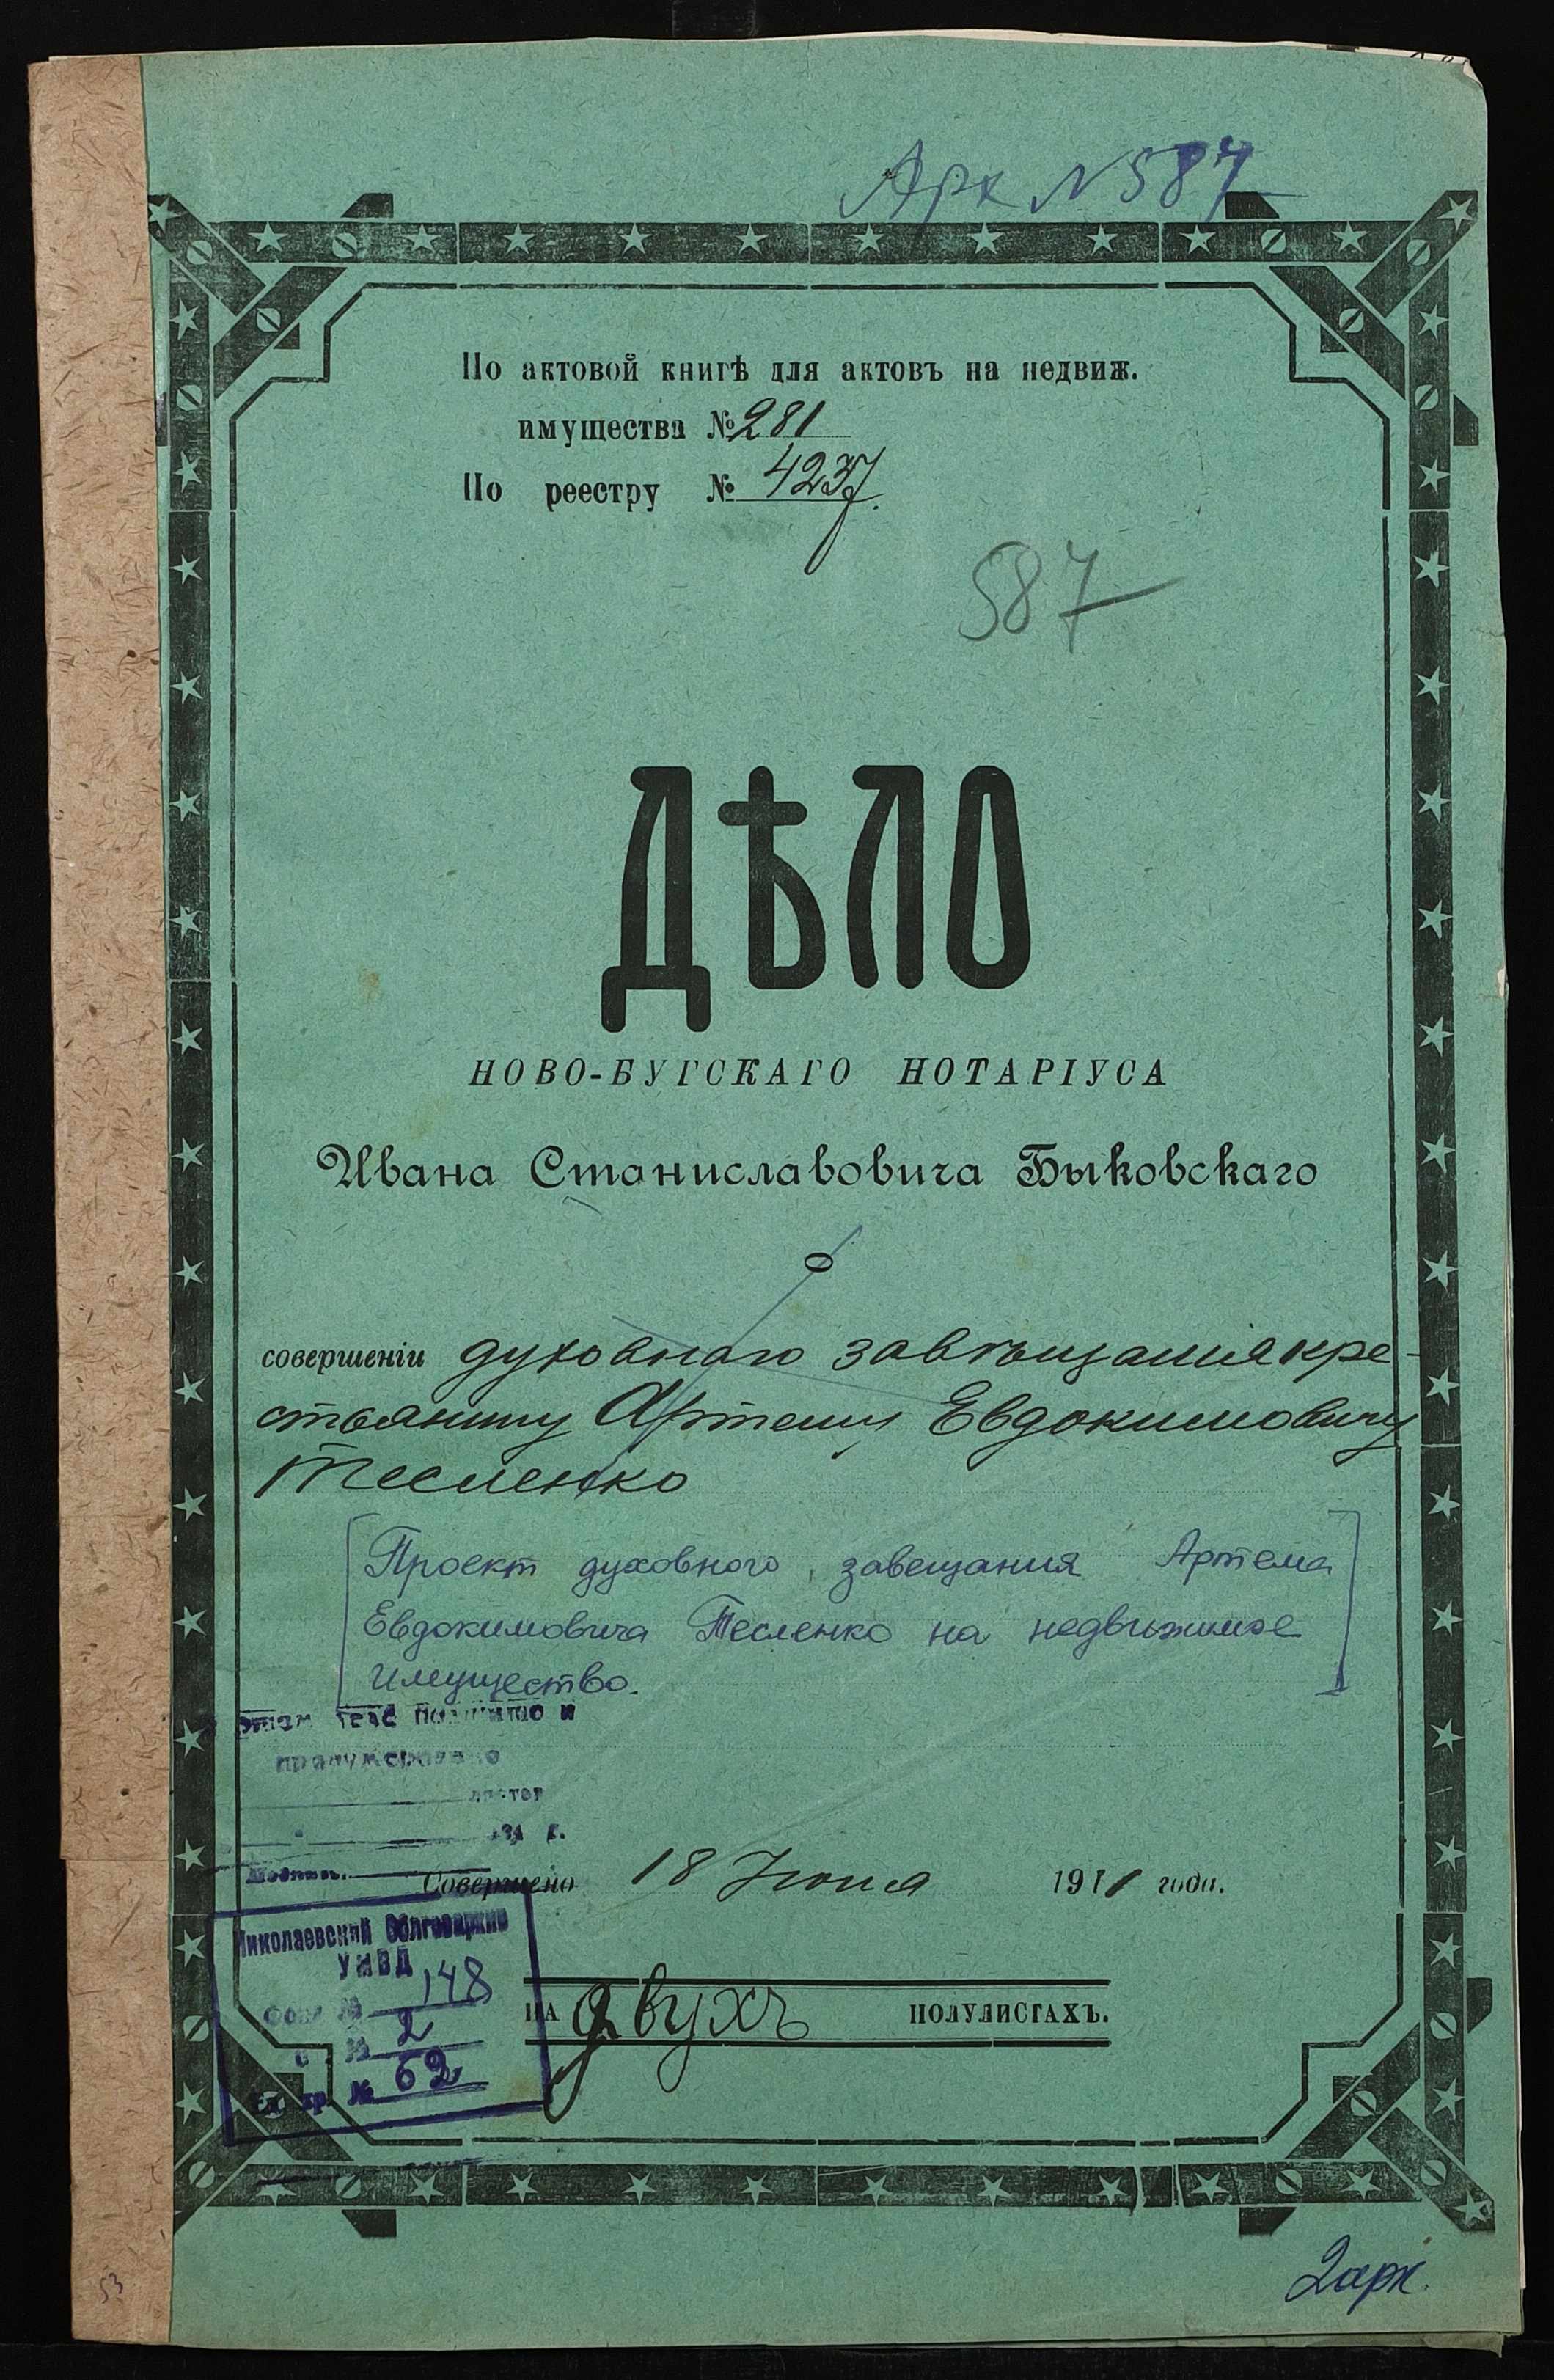 Арк N 587
По актовой книгѣ для актовъ на недвиж.
имущества № 281
По реестру № 4237.
587
ДѢЛО
НОВО-БУГСКАГО НОТАРІУСА
Ивана Станиславовича Быковскаго
О
совершеніи духовнаго завѣщанія кре-
стьянину Артему Евдокимовичу
Тесленко
[Проект духовного завещания Артема
Евдокимовича Тесленко на недвижимое
имущество.]
пронумеровано
листов
Совершено 18 Іюня 1911 года.
Николаевский Облгосархив
УМВД
фонд № 148
№ 2
Ед. хр. № 62
НА двухъ ПОЛУЛИСТАХЪ.
2 арк.
53